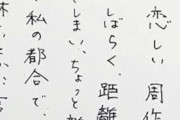 恋しい 周作
しばらく、距離
しまい、ちょっと
私の都合で、